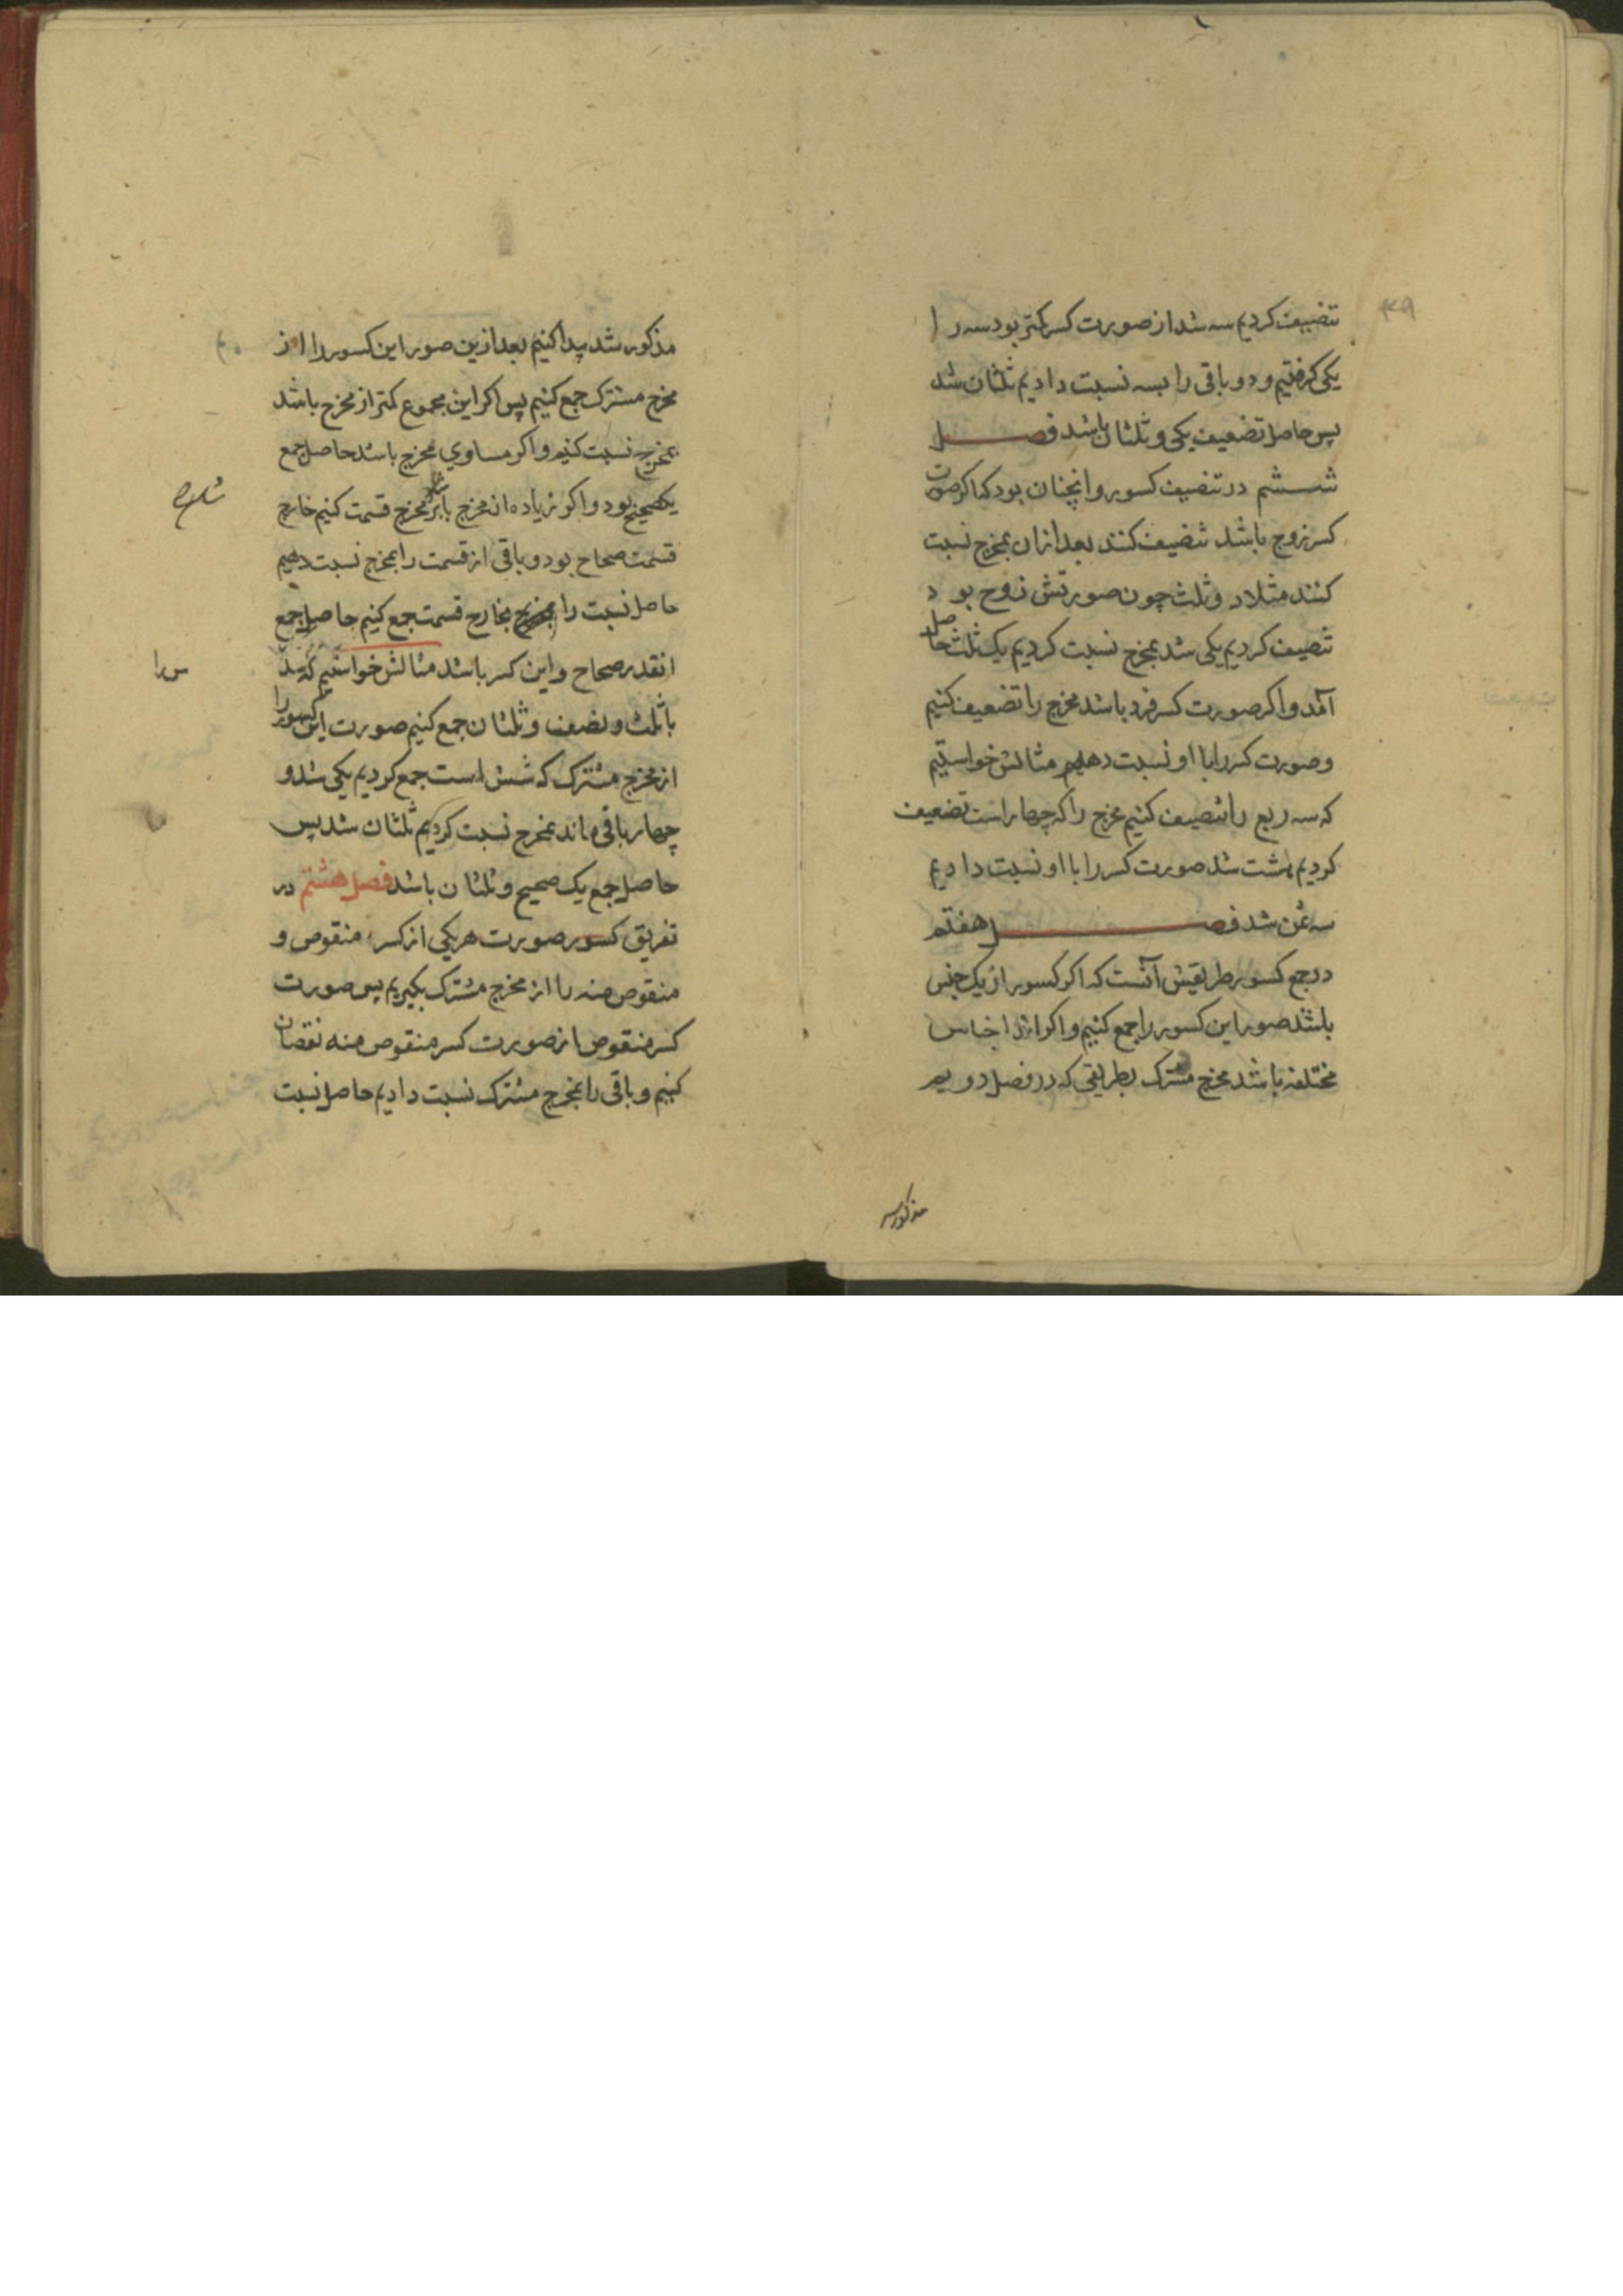 ۳۹
تنضیف کردیم سه شد از صورت کسر کمتر بود سه را
یکی گرفتیم و دو باقی را بسه نسبت دادیم ثلثان شد
پس حاصل تضعیف یکی و ثلثان باشد فصل
ششم در تنصیف کسور و انچنان بود که اگر صورت
کسر زوج باشد تنصیف کنند بعد ازان بمخرج نسبت
کنند مثلا دو ثلث چون صورتش زوج بود
تنصیف کردیم یکی شد بمخرج نسبت کردیم یک ثلث حاصل
آمد و اکر صورت کسر فرد باشد مخرج را تضعیف کنیم
و صورت کسر را با او نسبت دهیم مثالش خواستیم
که سه ربع را تنصیف کنیم مخرج را که چهار است تضعیف
کردیم هشت شد صورت کسر را با او نسبت دادیم
سه ثمن شد فصل هفتم
در جمع کسور طریقش آنست که اکر کسور از یک جنس
باشد صور این کسور را جمع کنیم و اکر از اجناس
مختلفه باشد مخرج مشترک بطریقی که در فصل دویم
مذکور
مذکور شد پیدا کنیم بعد ازین صور این کسور را از
مخرج مشترک جمع کنیم پس اکر این مجموع کمتر از مخرج باشد
بمخرج نسبت کنیم و اکر مساوی مخرج باشد حاصل جمع
یک صحیح بود و اکر زیاده از مخرج باشد بر مخرج قسمت کنیم خارج
قسمت صحاح بود و باقی از قسمت را بمخرج نسبت دهیم
حاصل نسبت را بخارج قسمت جمع کنیم حاصل جمع
انقدر صحاح و این کسر باشد مثالش خواستیم که سدس
سدس را
با ثلث و نصف و ثلثان جمع کنیم صورت این کسور را
از مخرج مشترک که شش است جمع کردیم یکی شد و
چهار باقی ماند بمخرج نسبت کردیم ثلثان شد پس
حاصل جمع یک صحیح و ثلثان باشد فصل هشتم در
تفریق کسور صورت هر یکی از کسر منقوص و
منقوص منه را از مخرج مشترک بکیریم پس صورت
کسر منقوص از صورت کسر منقوص منه نقصان
کنیم و باقی را بمخرج مشترک نسبت دادیم حاصل نسبت